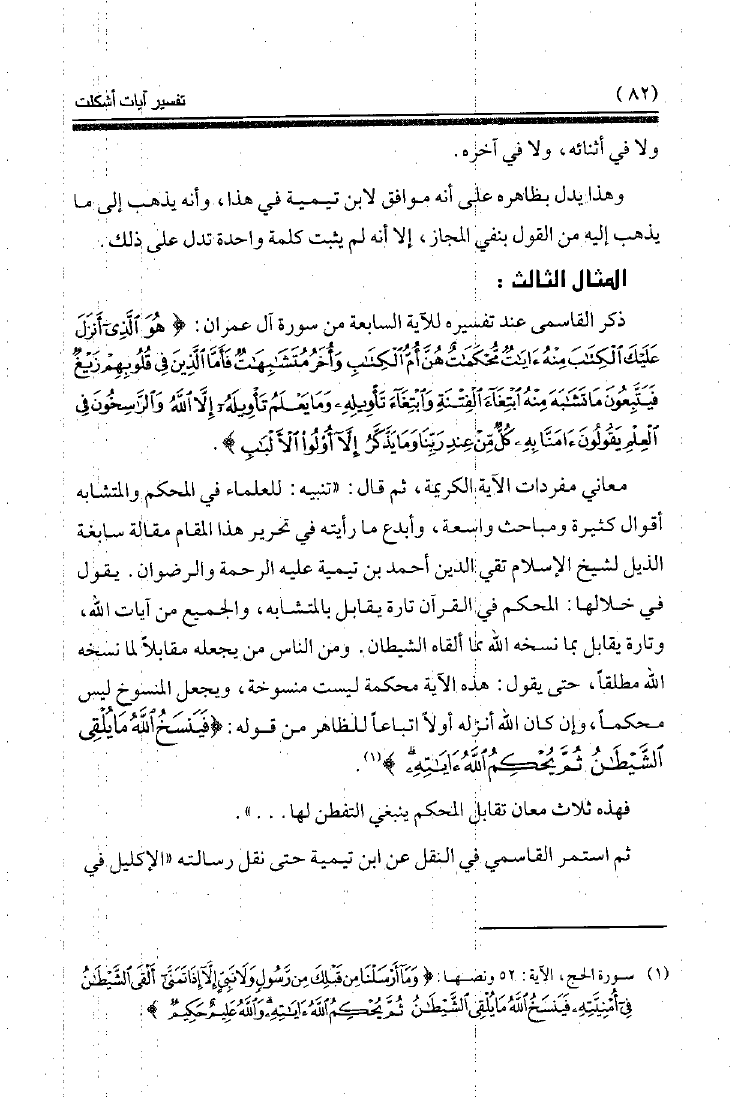 (٨٢)
تفسير آيات أشكلت
ولا في أثنائه، ولا في آخره.
وهذا يدل بظاهره على أنه موافق لابن تيمية في هذا، وأنه يذهب إلى ما
يذهب إليه من القول بنفي المجاز، إلا أنه لم يثبت كلمة واحدة تدل على ذلك.
المثال الثالث :
ذكر القاسمي عند تفسيره للآية السابعة من سورة آل عمران: ﴿ هُوَ ٱلَّذِىٓ أَنزَلَ
عَلَيْكَ ٱلْكِتَٰبَ مِنْهُ ءَايَٰتٌ مُّحْكَمَٰتٌ هُنَّ أُمُّ ٱلْكِتَٰبِ وَأُخَرُ مُتَشَٰبِهَٰتٌ فَأَمَّا ٱلَّذِينَ فِى قُلُوبِهِمْ زَيْغٌ
فَيَتَّبِعُونَ مَا تَشَٰبَهَ مِنْهُ ٱبْتِغَآءَ ٱلْفِتْنَةِ وَٱبْتِغَآءَ تَأْوِيلِهِۦ وَمَا يَعْلَمُ تَأْوِيلَهُۥٓ إِلَّا ٱللَّهُ وَٱلرَّٰسِخُونَ فِى
ٱلْعِلْمِ يَقُولُونَ ءَامَنَّا بِهِۦ كُلٌّ مِّنْ عِندِ رَبِّنَا وَمَا يَذَّكَّرُ إِلَّآ أُو۟لُوا۟ ٱلْأَلْبَٰبِ ﴾.
معاني مفردات الآية الكريمة، ثم قال: «تنبيه: للعلماء في المحكم والمتشابه
أقوال كثيرة ومباحث واسعة، وأبدع ما رأيته في تحرير هذا المقام مقالة سابغة
الذيل لشيخ الإسلام تقي الدين أحمد بن تيمية عليه الرحمة والرضوان. يقول
في خلالها: المحكم في القرآن تارة يقابل بالمتشابه، والجميع من آيات الله،
وتارة يقابل بما نسخه الله مما ألقاه الشيطان. ومن الناس من يجعله مقابلاً لما نسخه
الله مطلقاً، حتى يقول: هذه الآية محكمة ليست منسوخة، ويجعل المنسوخ ليس
محكماً، وإن كان الله أنزله أولاً اتباعاً للظاهر من قوله: ﴿فَيَنسَخُ ٱللَّهُ مَا يُلْقِى
ٱلشَّيْطَٰنُ ثُمَّ يُحْكِمُ ٱللَّهُ ءَايَٰتِهِۦ ﴾(١).
فهذه ثلاث معان تقابل المحكم ينبغي التفطن لها...».
ثم استمر القاسمي في النقل عن ابن تيمية حتى نقل رسالته «الإكليل في
(١) سورة الحج، الآية: ٥٢ ونصها: ﴿ وَمَآ أَرْسَلْنَا مِن قَبْلِكَ مِن رَّسُولٍ وَلَا نَبِىٍّ إِلَّآ إِذَا تَمَنَّىٰٓ أَلْقَى ٱلشَّيْطَٰنُ
فِىٓ أُمْنِيَّتِهِۦ فَيَنسَخُ ٱللَّهُ مَا يُلْقِى ٱلشَّيْطَٰنُ ثُمَّ يُحْكِمُ ٱللَّهُ ءَايَٰتِهِۦ وَٱللَّهُ عَلِيمٌ حَكِيمٌ ﴾